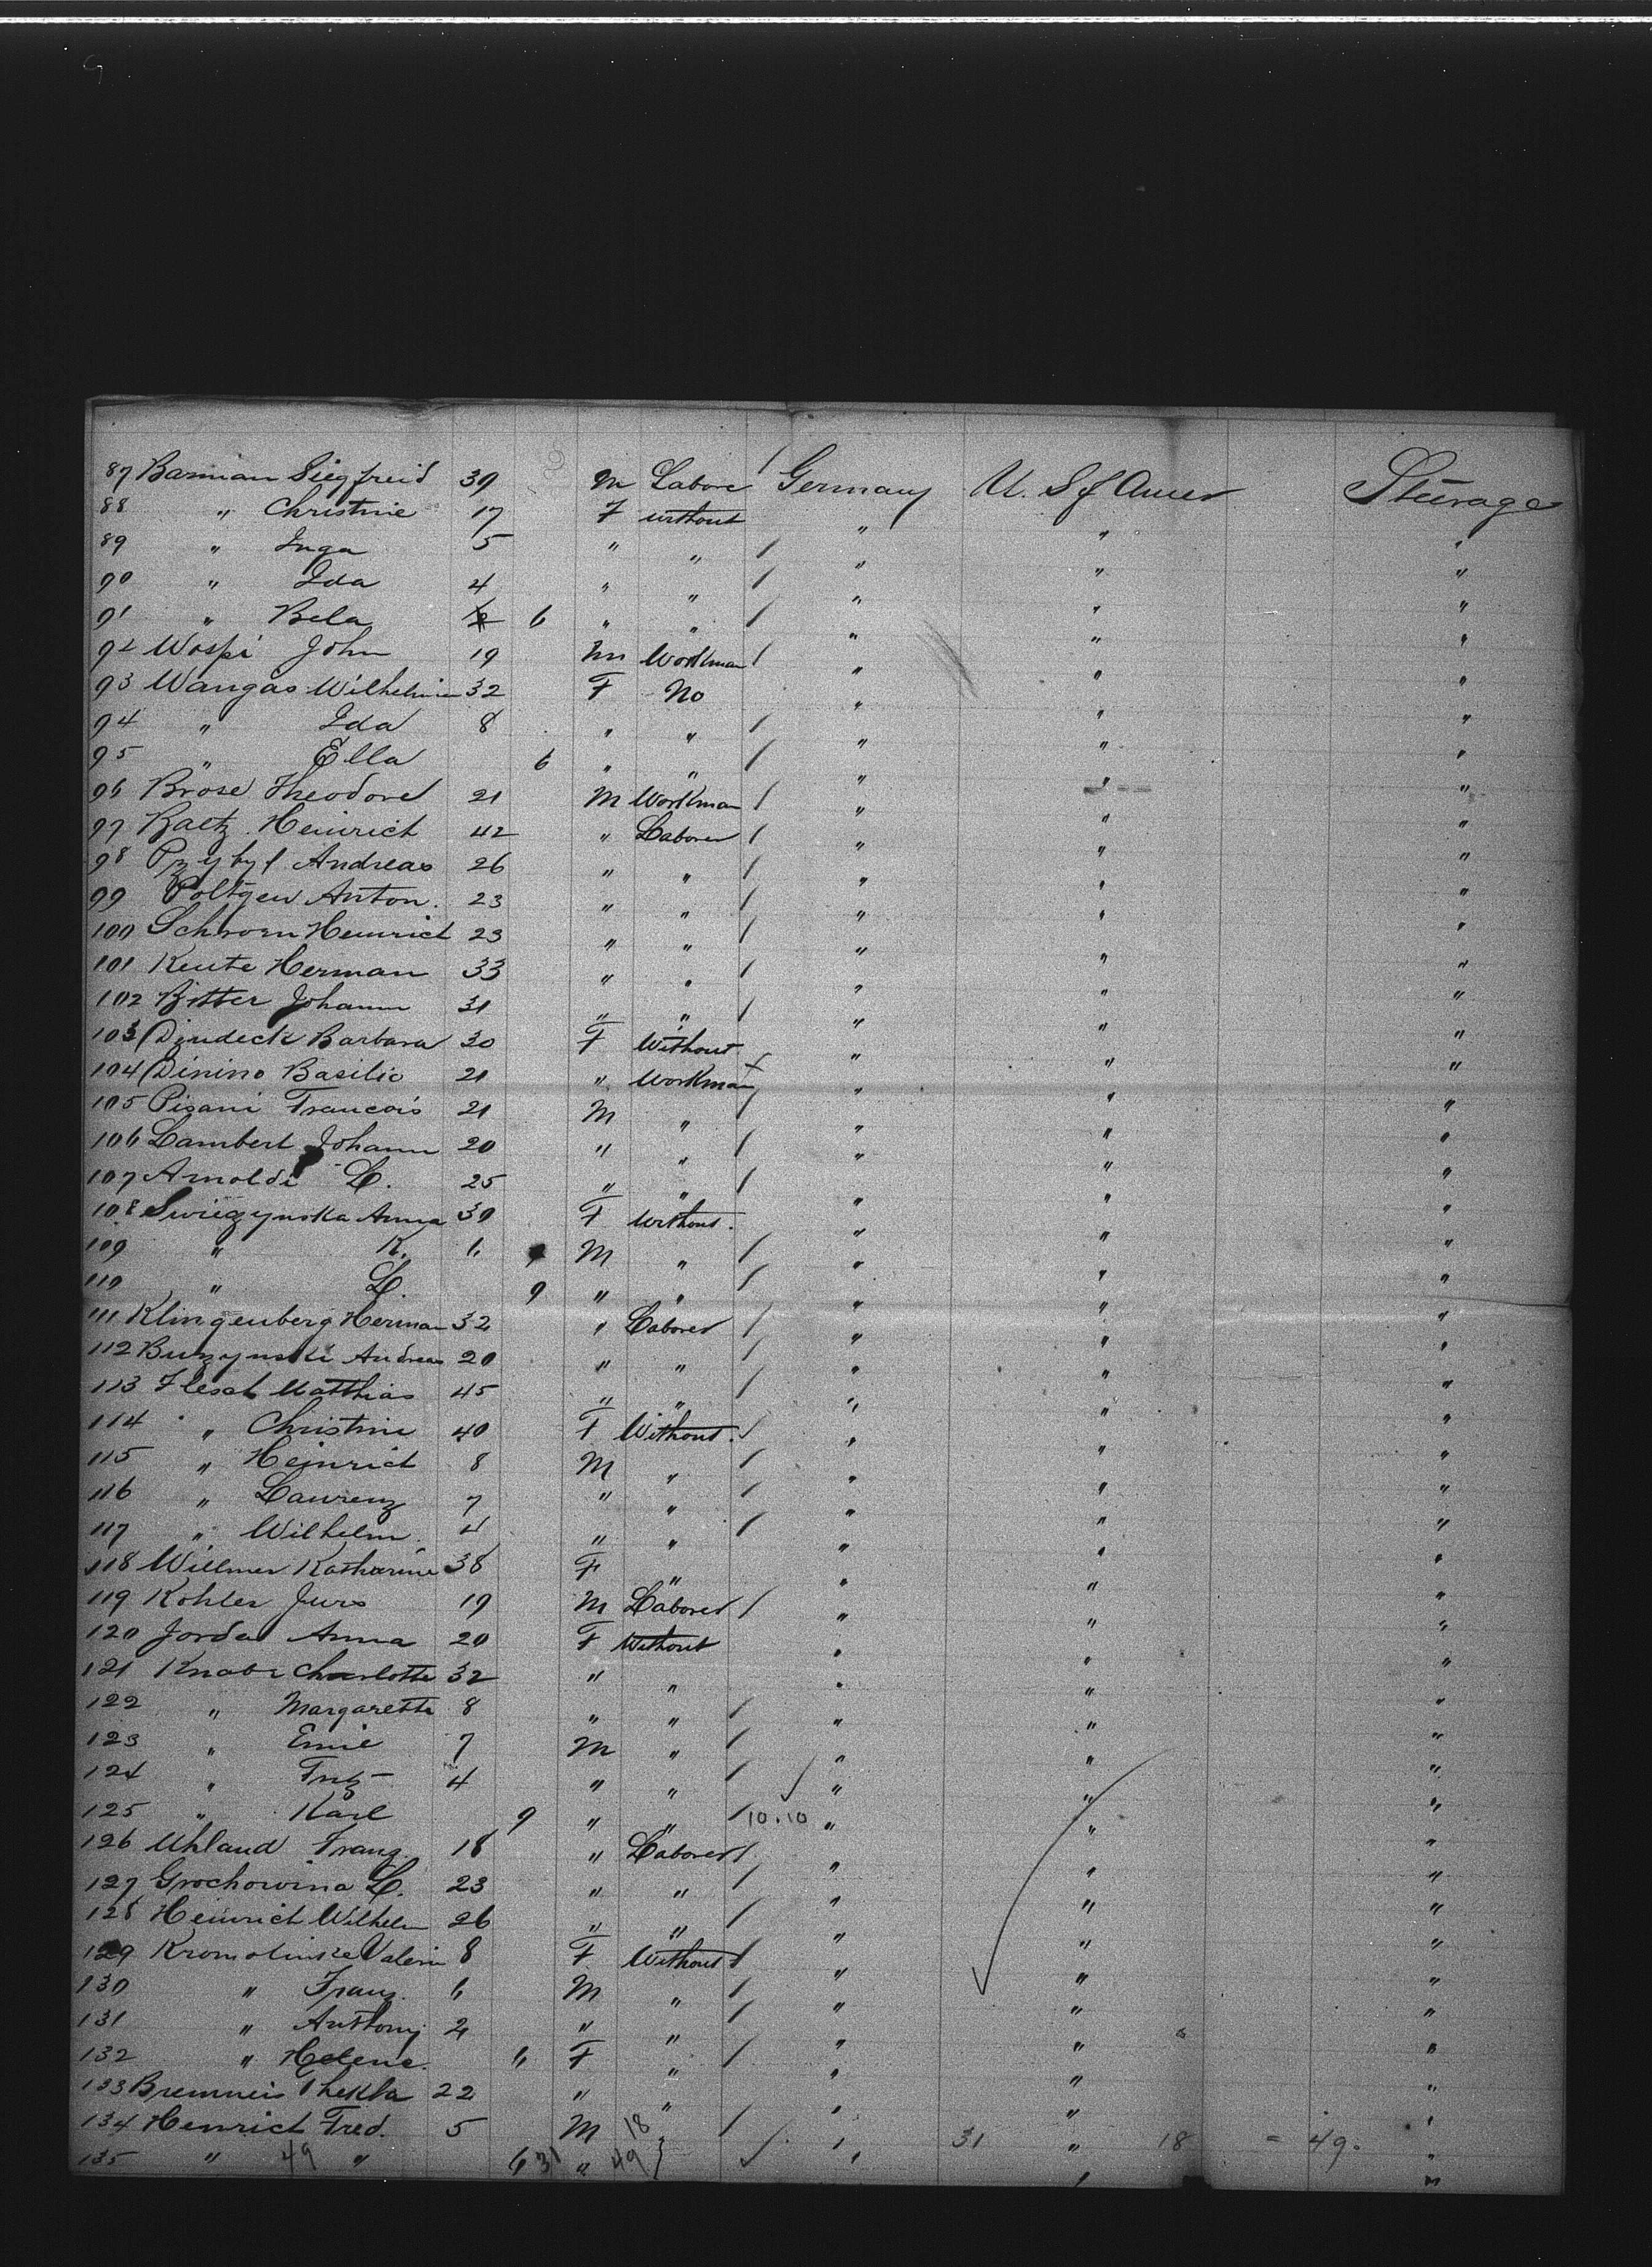 87 Barnian Siegfreid 39 M Labore Germany U. S f Amer Steerage
88 " Christine 17 F without " " "
89 " Inga 5 " " " " "
90 " Ida 4 " " " " "
91 " Bela 6 " " " " "
92 Waspi John 19 M Workman " " "
93 Wangas Wilhelmin 32 F No " " "
94 " Ida 8 " " " " "
95 " Ella 6 " " " " "
96 Brose Theodore 21 M Workman " " "
97 Raetz Heinrich 42 " Laborer " " "
98 Pzybyl Andreas 26 " " " " "
99 Poltgen Anton. 23 " " " " "
100 Schworn Heinrich 23 " " " " "
101 Keute Herman 33 " " " " "
102 Ritter Johann 31 " " " " "
103 Dzudeck Barbara 30 F Without " " "
104 Dinino Basilio 21 " Workman " " "
105 Pisani Francois 21 M " " " "
106 Lambert Johann 20 " " " " "
107 Arnoldi L. 25 " " " " "
108 Swiezynska Anna 39 F Without. " " "
109 " K. 6 M " " " "
110 " L. 9 " " " " "
111 Klingenberg Herman 32 " Laborer " " "
112 Buzynski Andreas 20 " " " " "
113 Flesch Matthias 45 " " " " "
114 " Christine 40 F Without. " " "
115 " Heinrich 8 M " " " "
116 " Laurenz 7 " " " " "
117 " Wilhelm. 4 " " " " "
118 Willmer Katharine 38 F " " " "
119 Kohler Jurs 19 M Laborer " " "
120 Jordal Anna 20 F Without " " "
121 Knabe Charlotte 32 " " " " "
122 " Margarette 8 " " " " "
123 " Emie 7 M " " " "
124 " Fritz 4 " " " " "
125 " Karl 9 " " 10.10 " " "
126 Uhland Franz. 18 " Laborer " " "
127 Grochowina L. 23 " " " " "
128 Heinrich Wilhelm 26 " " " " "
129 Kromolinske Valerin 8 F Without " " "
130 " Franz. 6 M " " " "
131 " Anthony 2 " " " " "
132 " Helene. 6 F " " " "
133 Bremmeis Thekla 22 " " " " "
134 Henrich Fred. 5 M 18 " " 31 " 18 = 49. "
135 " 49 " 6 31 " 49 " " "